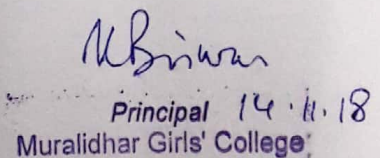 Principal 14.11.18
Muralidhar Girls' College